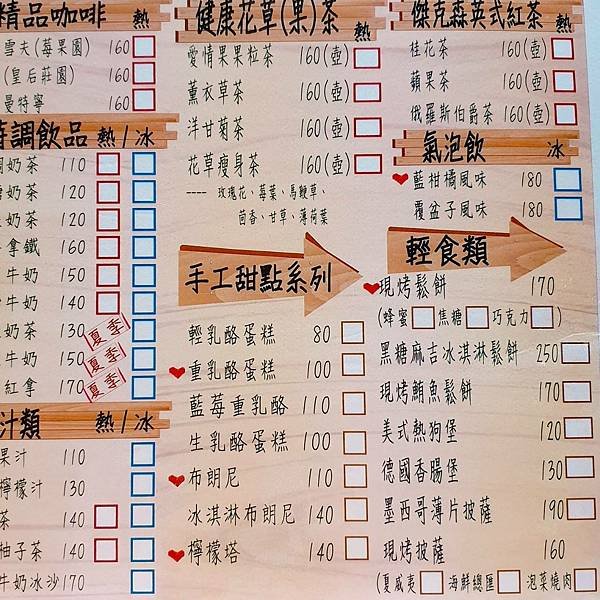 精品咖啡 熱
雪夫(莓果園) 160
(皇后莊園) 160
曼特寧 160
調飲品 熱/冰
奶茶 110
奶茶 120
奶茶 120
拿鐵 160
牛奶 150
牛奶 140
奶茶 130 夏季
牛奶 150 夏季
紅拿 170 夏季
汁類 熱/冰
果汁 110
檸檬汁 130
茶 140
柚子茶 140
牛奶冰沙 170
健康花草(果)茶 熱
愛情果果粒茶 160(壺)
薰衣草茶 160(壺)
洋甘菊茶 160(壺)
花草瘦身茶 160(壺)
---- 玫瑰花、莓葉、馬鞭草、
茴香、甘草、薄荷葉
手工甜點系列
輕乳酪蛋糕 80
重乳酪蛋糕 100
藍莓重乳酪 110
生乳酪蛋糕 100
布朗尼 110
冰淇淋布朗尼 140
檸檬塔 140
傑克森英式紅茶 熱
桂花茶 160(壺)
蘋果茶 160(壺)
俄羅斯伯爵茶 160(壺)
氣泡飲 冰
藍柑橘風味 180
覆盆子風味 180
輕食類
現烤鬆餅 170
(蜂蜜 焦糖 巧克力 )
黑糖麻吉冰淇淋鬆餅 250
現烤鮪魚鬆餅 170
美式熱狗堡 120
德國香腸堡 130
墨西哥薄片披薩 190
現烤披薩 160
(夏威夷 海鮮總匯 泡菜燒肉